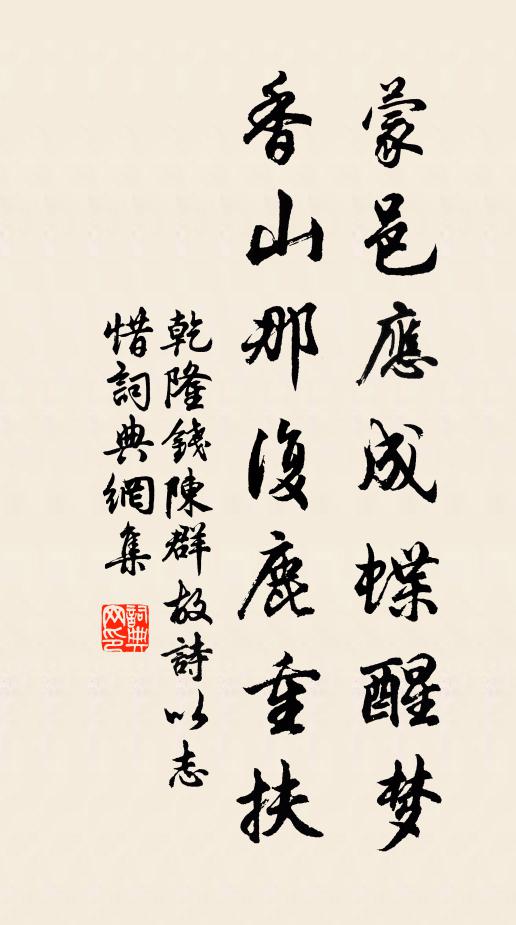 蒙邑應成蝶醒梦
香山那復鹿重扶
乾隆錢陳群故詩以志
惜詞典網集
詞典网印